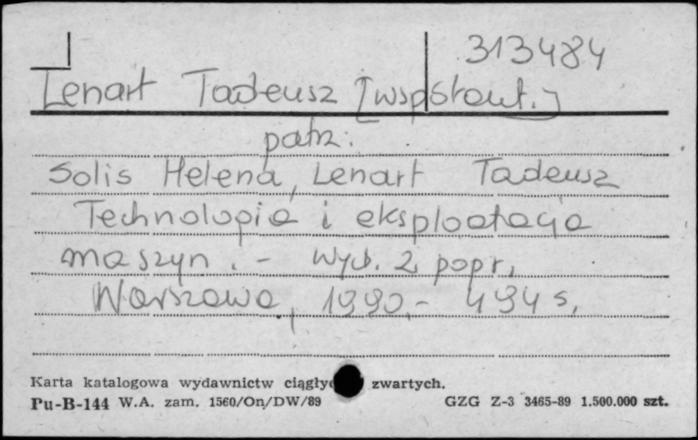 313484
Lenart Tadeusz [współaut.]
patrz:
Solis Helena, Lenart Tadeusz
Technologia i eksploatacja
maszyn. - Wyd. 2 popr.
Warszawa, 1990.- 494 s.
Karta katalogowa wydawnictw ciągły zwartych.
Pu-B-144 W.A. zam. 1560/On/DW/89 GZG Z-3 3465-89 1.500.000 szt.